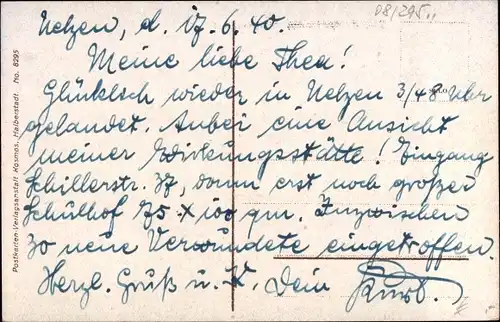 08/295
Uelzen, d. 17.6.40.
Meine liebe Thea!
Glücklich wieder in Uelzen 3/48 Uhr
gelandet. Anbei eine Ansicht
meiner Wirkungsstätte! Eingang
Schillerstr. 37, dann erst noch großer
Schulhof 75 x 100 qm. Inzwischen
30 neue Verwundete eingetroffen.
Herzl. Gruß u. K. Dein
Postkarten-Verlagsanstalt Kosmos, Halberstadt. No. 8295